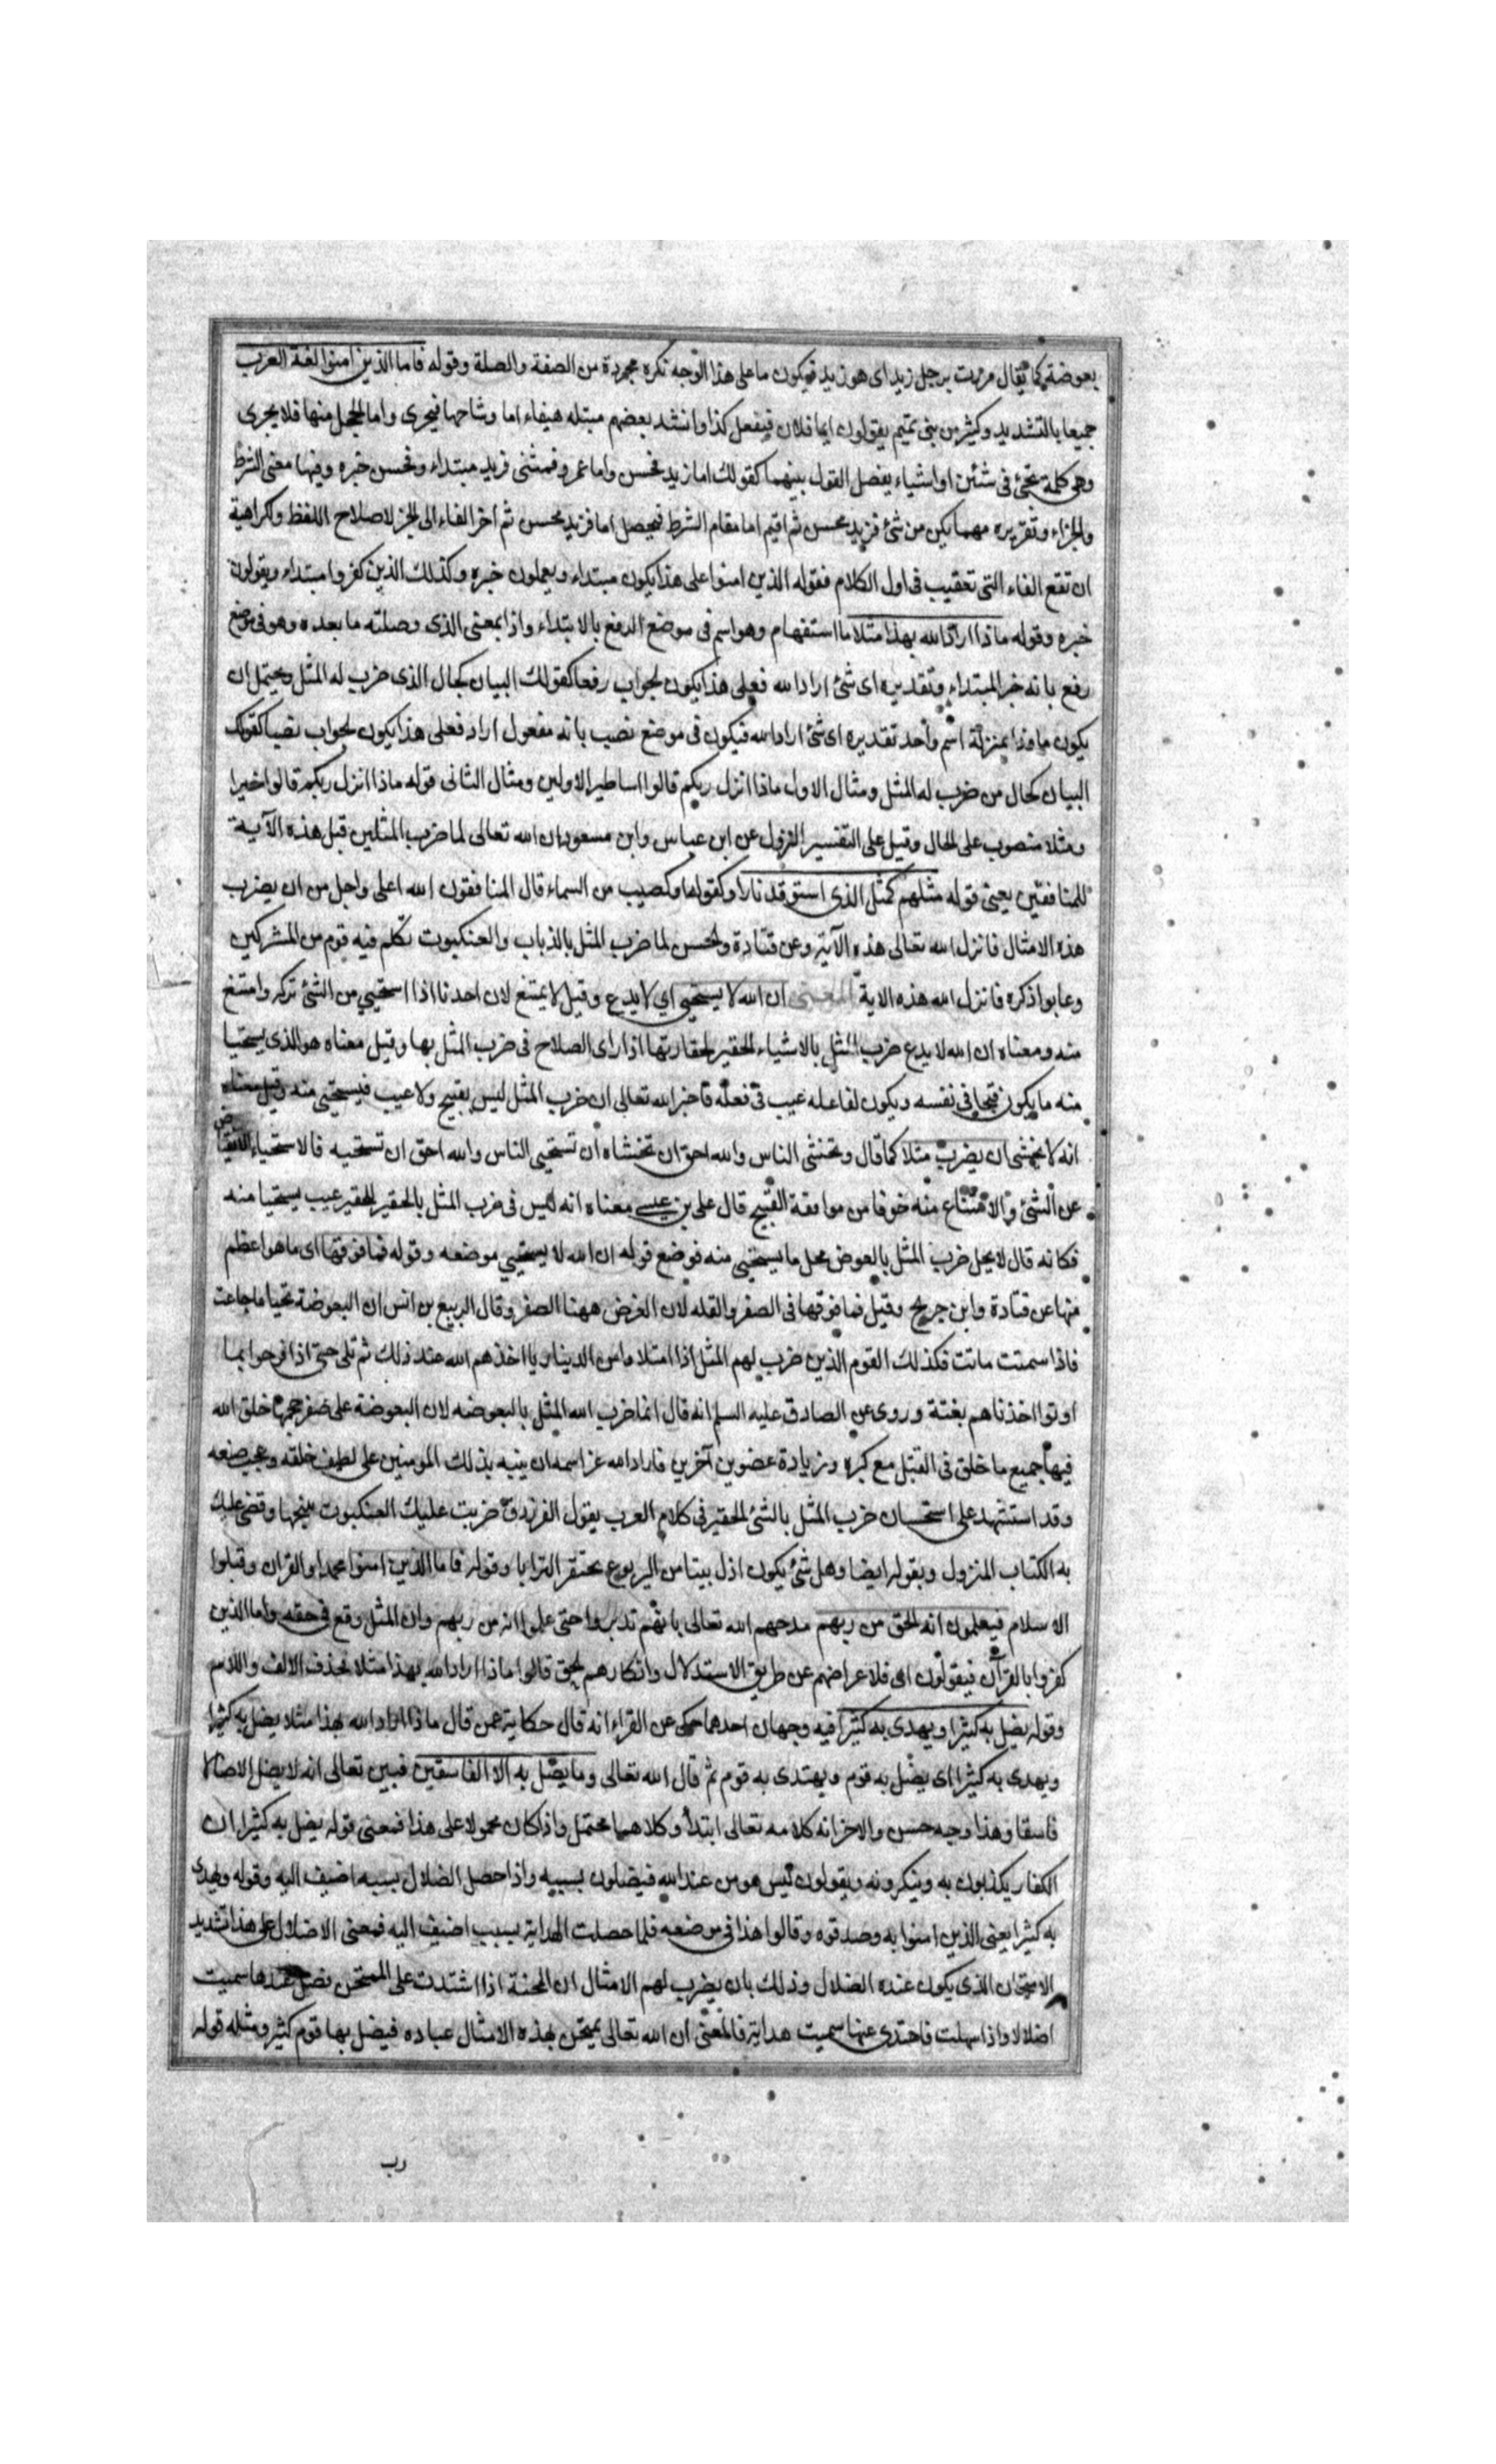 بعوضة كما يقال مررت برجل زيد اى هو زيد فيكون ما على هذا الوجه نكرة مجردة من الصفة والصلة وقوله فاما الذين امنوا لغة العرب
جميعا بالتشديد وكثير من بنى تميم يقولون ايما فلان فيفعل كذا وانشد بعضهم مبتلة هيفاء اما وشاحها فيجرى واما الحجل منها فلا يجرى
وهى كلمة تجئ فى شئين او اشياء يفصل القول بينهما كقولك اما زيد فحسن واما عمرو فمسئ فزيد مبتداء وفحسن خبره وفيها معنى الشرط
والجزاء وتقريره مهما يكن من شئ فزيد محسن ثم اقيم اما مقام الشرط فيحصل اما فزيد محسن ثم اخر الفاء الى الخبر لاصلاح اللفظ ولكراهية
ان تقع الفاء التى تعقيب فى اول الكلام فقوله الذين امنوا على هذا يكون مبتداء ويعلمون خبره وكذلك الذين كفروا مبتداء ويقولون
خبره وقوله ماذا اراد الله بهذا مثلا ما استفهام وهو اسم فى موضع الرفع بالابتداء واذا بمعنى الذى وصلته ما بعده وهو فى موضع
رفع بانه خبر المبتداء وتقديره اى شئ اراد الله فعلى هذا يكون الجواب رفعا كقولك البيان لحال الذى ضرب له المثل ويحتمل ان
يكون ماذا بمنزلة اسم واحد تقديره اى شئ اراد الله فيكون فى موضع نصب بانه مفعول اراد فعلى هذا يكون الجواب نصبا كقولك
البيان لحال من ضرب له المثل ومثال الاول ماذا انزل ربكم قالوا اساطير الاولين ومثال الثانى قوله ماذا انزل ربكم قالوا خيرا
ومثلا منصوب على الحال وقيل على التفسير النزول عن ابن عباس وابن مسعود ان الله تعالى لما ضرب المثلين قبل هذه الآية
للمنافقين يعنى قوله مثلهم كمثل الذى استوقد نارا وكقوله او كصيب من السماء قال المنافقون الله اعلى واجل من ان يضرب
هذه الامثال فانزل الله تعالى هذه الآية وعن قتادة والحسن لما ضرب المثل بالذباب والعنكبوت تكلم فيه قوم من المشركين
وعابوا ذكره فانزل الله هذه الاية المعنى ان الله لا يستحيي اي لا يدع وقيل لا يمتنع لان احدنا اذا استحيي من الشئ تركه وامتنع
منه ومعناه ان الله لا يدع ضرب المثل بالاشياء الحقير لحقارتها اذا راى الصلاح فى ضرب المثل بها وقيل معناه هو الذى يستحيا
منه ما يكون قبيحا فى نفسه ويكون لفاعله عيب فى فعله فاخبر الله تعالى ان ضرب المثل ليس بقبيح ولا عيب فيستحيى منه وقيل معناه
انه لا يخشى ان يضرب مثلا كما قال وتخشى الناس والله احق ان تخشاه ان تستحيي الناس والله احق ان تستحيه فالاستحياء الانقباض
عن الشئ والامتناع منه خوفا من موافقة القبيح قال على بن عيسى معناه انه ليس فى ضرب المثل بالحقير للحقير عيب يستحيا منه
فكانه قال لا يحل ضرب المثل بالعوض محل ما يستحيي منه فوضع قوله ان الله لا يستحيي موضعه وقوله فما فوقها اى ما هو اعظم
منها عن قتادة وابن جريح وقيل فما فوقها فى الصغر والقله لان الغرض ههنا الصغر وقال الربيع بن انس ان البعوضة تحيا ما جاعت
فاذا سمنت ماتت فكذلك القوم الذين ضرب لهم المثل اذا امتلاوا من الدنيا ريا اخذهم الله عند ذلك ثم تلى حتى اذا فرحوا بما
اوتوا اخذناهم بغتة وروى عن الصادق عليه السلم انه قال انما ضرب الله المثل بالبعوضه لان البعوضة على صغر حجمها خلق الله
فيها جميع ما خلق فى الفيل مع كبره وزيادة عضوين آخرين فاراد الله عز اسمه ان ينبه بذلك المومنين على لطيف خلقه وعجيب صنعه
وقد استشهد على استحسان ضرب المثل بالشئ الحقير فى كلام العرب بقول الفرزدق ضربت عليك العنكبوت بنسجها وقضى عليك
به الكتاب المنزول وبقوله ايضا وهل شئ يكون اذل بيتا من اليربوع يحتقر الترابا وقوله فاما الذين امنوا بمحمد والقران وقبلوا
الاسلام فيعلمون انه الحق من ربهم مدحهم الله تعالى بانهم تدبروا حتى علموا انه من ربهم وان المثل وقع فى حقه واما الذين
كفروا بالقرآن فيقولون اى فلاعراضهم عن طريق الاستدلال وانكارهم الحق قالوا ماذا اراد الله بهذا مثلا بحذف الالف واللام
وقوله يضل به كثيرا ويهدى به كثيرا فيه وجهان احدهما حكى عن الفراء انه قال حكاية عمن قال ماذا اراد الله بهذا مثلا يضل به كثيرا
ويهدى به كثيرا اى يضل به قوم ويهتدى به قوم ثم قال الله تعالى وما يضل به الا الفاسقين فبين تعالى انه لا يضل الا ضالا
فاسقا وهذا وجه حسن والاخر انه كلامه تعالى ابتدأ وكلاهما محتمل واذا كان محمولا على هذا فمعنى قوله يضل به كثيرا ان
الكفار يكذبون به وينكرونه ويقولون ليس هو من عند الله فيضلون بسببه واذا حصل الضلال بسببه اضيف اليه وقوله ويهدى
به كثيرا يعنى الذين امنوا به وصدقوه وقالوا هذا فى موضعه فلما حصلت الهداية بسبب اضيف اليه فمعنى الاضلال على هذا تشديد
الامتحان الذى يكون عنده الضلال وذلك بان يضرب لهم الامثال ان المحنة اذا اشتدت على الممتحن فضل عندها سميت
اضلالا واذا سهلت فاهتدى عنها سميت هداية فالمعنى ان الله تعالى يمتحن بهذه الامثال عباده فيضل بها قوم كثير ومثله قوله
رب